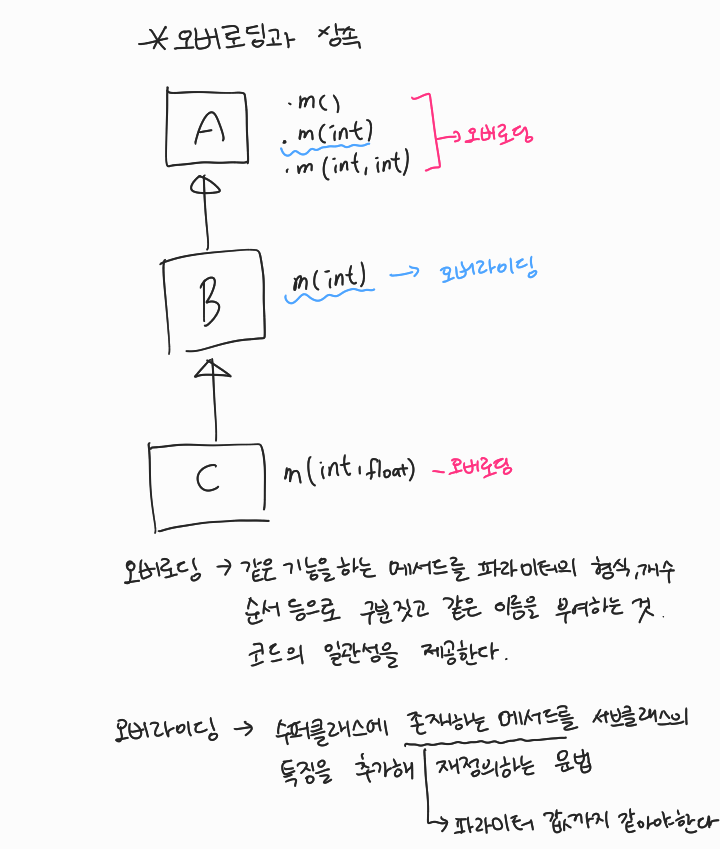 * 오버로딩과 상속
A
· m()
· m(int)
· m(int, int)
→ 오버로딩
B
m(int) → 오버라이딩
C
m(int, float) - 오버로딩
오버로딩 → 같은 기능을 하는 메서드를 파라미터의 형식, 개수
순서 등으로 구분짓고 같은 이름을 부여하는 것.
코드의 일관성을 제공한다.
오버라이딩 → 수퍼클래스에 존재하는 메서드를 서브클래스의
특징을 추가해 재정의하는 문법
→ 파라미터 값까지 같아야한다